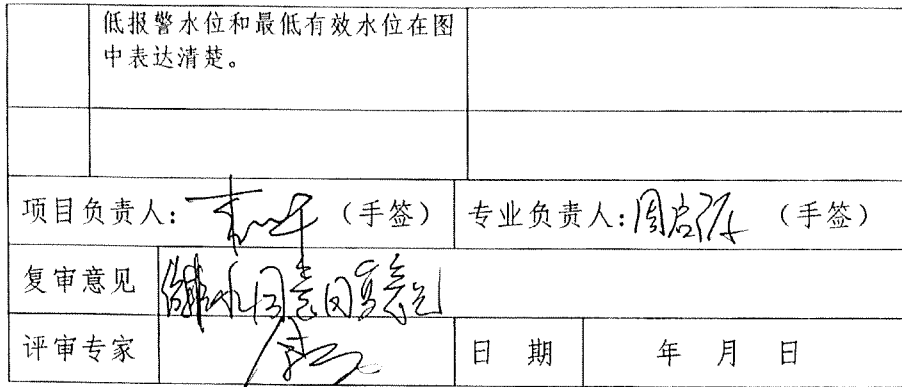 低报警水位和最低有效水位在图
中表达清楚。
项目负责人: （手签） 专业负责人:周启源 （手签）
复审意见 给水同意回复意见
评审专家 日 期 年 月 日